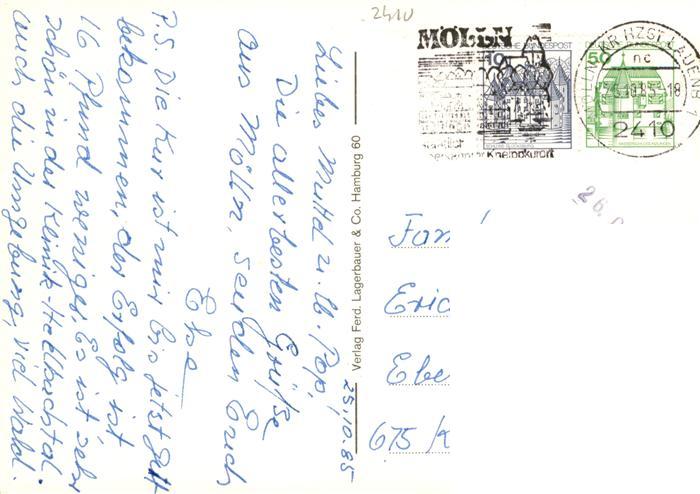 2410
MÖLLN
Kneippkurort
DEUTSCHE BUNDESPOST
10
50
2410
Liebes Muttl u. lb. Pop,
Die allerbesten Grüße
aus Mölln, senden Euch
Else
P.S. Die Kur ist mir bis jetzt gut
bekommen, der Erfolg ist
16 Pfund weniger. Es ist sehr
schön in der Klinik-Hellbachtal
auch die Umgebung, viel Wald.
25.10.85
Verlag Ferd. Lagerbauer & Co. Hamburg 60
26.
Fam
Eric
Ebe
675 K